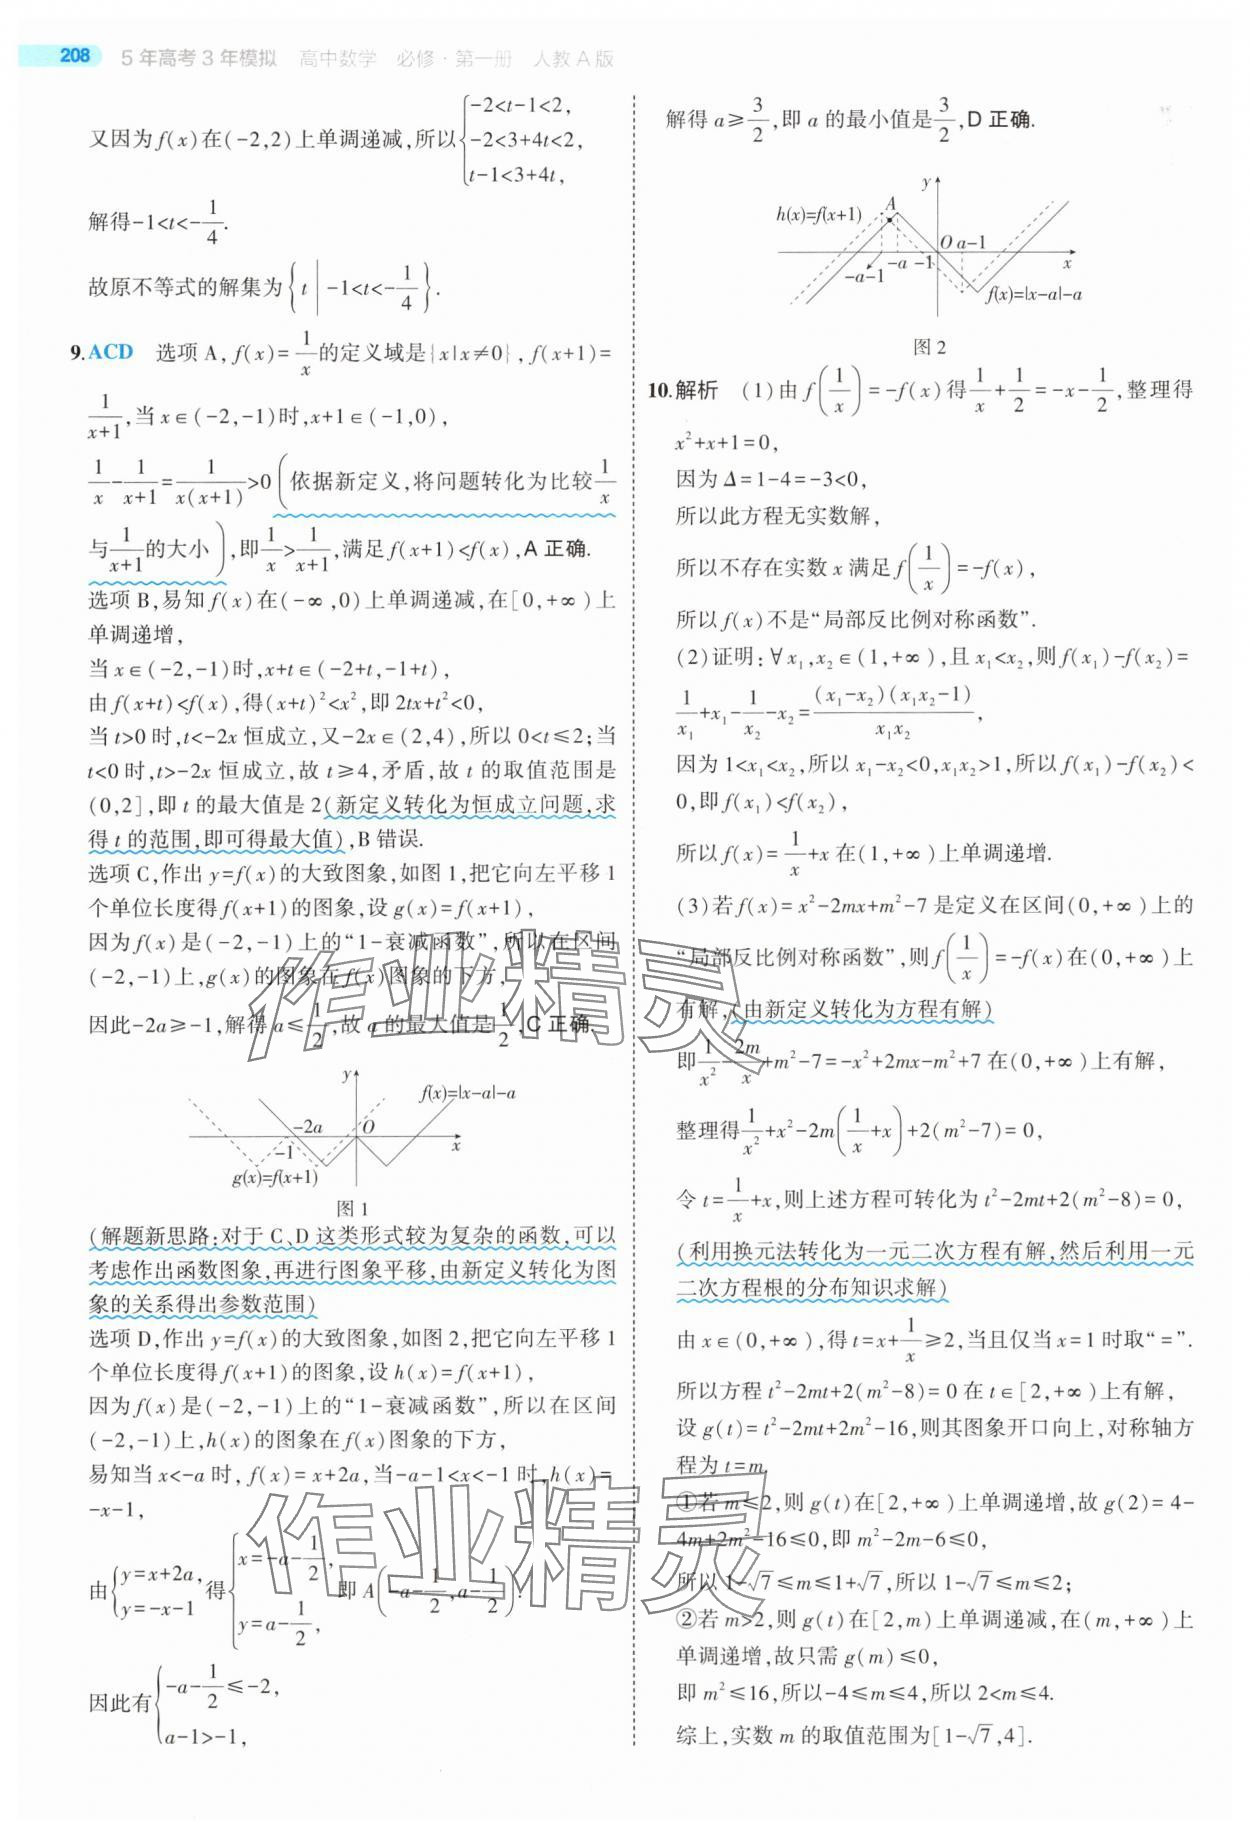 208 5年高考3年模拟 高中数学 必修·第一册 人教A版
又因为f(x)在(-2,2)上单调递减,所以{-2<t-1<2, -2<3+4t<2, t-1<3+4t,
解得-1<t<-1/4.
故原不等式的解集为{t|-1<t<-1/4}.
9.ACD 选项A,f(x)=1/x的定义域是{x|x≠0},f(x+1)=
1/(x+1),当x∈(-2,-1)时,x+1∈(-1,0),
1/x-1/(x+1)=1/(x(x+1))>0(依据新定义,将问题转化为比较1/x
与1/(x+1)的大小),即1/x>1/(x+1),满足f(x+1)<f(x),A正确.
选项B,易知f(x)在(-∞,0)上单调递减,在[0,+∞)上
单调递增,
当x∈(-2,-1)时,x+t∈(-2+t,-1+t),
由f(x+t)<f(x),得(x+t)²<x²,即2tx+t²<0,
当t>0时,t<-2x恒成立,又-2x∈(2,4),所以0<t≤2;当
t<0时,t>-2x恒成立,故t≥4,矛盾,故t的取值范围是
(0,2],即t的最大值是2(新定义转化为恒成立问题,求
得t的范围,即可得最大值),B错误.
选项C,作出y=f(x)的大致图象,如图1,把它向左平移1
个单位长度得f(x+1)的图象,设g(x)=f(x+1),
因为f(x)是(-2,-1)上的“1-衰减函数”,所以在区间
(-2,-1)上,g(x)的图象在f(x)图象的下方,
因此-2a≥-1,解得a≤1/2,故a的最大值是1/2,C正确.
y
f(x)=|x-a|-a
-2a O
-1 x
g(x)=f(x+1)
图1
(解题新思路:对于C、D这类形式较为复杂的函数,可以
考虑作出函数图象,再进行图象平移,由新定义转化为图
象的关系得出参数范围)
选项D,作出y=f(x)的大致图象,如图2,把它向左平移1
个单位长度得f(x+1)的图象,设h(x)=f(x+1),
因为f(x)是(-2,-1)上的“1-衰减函数”,所以在区间
(-2,-1)上,h(x)的图象在f(x)图象的下方,
易知当x<-a时,f(x)=x+2a,当-a-1<x<-1时,h(x)=
-x-1,
由{y=x+2a, y=-x-1得{x=-a-1/2, y=a-1/2,即A(-a-1/2,a-1/2).
因此有{-a-1/2≤-2, a-1>-1,
解得a≥3/2,即a的最小值是3/2,D正确.
y
h(x)=f(x+1) A
O a-1
-a-1 -a -1 x
f(x)=|x-a|-a
图2
10.解析 (1)由f(1/x)=-f(x)得1/x+1/2=-x-1/2,整理得
x²+x+1=0,
因为Δ=1-4=-3<0,
所以此方程无实数解,
所以不存在实数x满足f(1/x)=-f(x),
所以f(x)不是“局部反比例对称函数”.
(2)证明:∀x₁,x₂∈(1,+∞),且x₁<x₂,则f(x₁)-f(x₂)=
1/x₁+x₁-1/x₂-x₂=(x₁-x₂)(x₁x₂-1)/(x₁x₂),
因为1<x₁<x₂,所以x₁-x₂<0,x₁x₂>1,所以f(x₁)-f(x₂)<
0,即f(x₁)<f(x₂),
所以f(x)=1/x+x在(1,+∞)上单调递增.
(3)若f(x)=x²-2mx+m²-7是定义在区间(0,+∞)上的
“局部反比例对称函数”,则f(1/x)=-f(x)在(0,+∞)上
有解,(由新定义转化为方程有解)
即1/x²-2m/x+m²-7=-x²+2mx-m²+7在(0,+∞)上有解,
整理得1/x²+x²-2m(1/x+x)+2(m²-7)=0,
令t=1/x+x,则上述方程可转化为t²-2mt+2(m²-8)=0,
(利用换元法转化为一元二次方程有解,然后利用一元
二次方程根的分布知识求解)
由x∈(0,+∞),得t=x+1/x≥2,当且仅当x=1时取“=”.
所以方程t²-2mt+2(m²-8)=0在t∈[2,+∞)上有解,
设g(t)=t²-2mt+2m²-16,则其图象开口向上,对称轴方
程为t=m.
①若m≤2,则g(t)在[2,+∞)上单调递增,故g(2)=4-
4m+2m²-16≤0,即m²-2m-6≤0,
所以1-√7≤m≤1+√7,所以1-√7≤m≤2;
②若m>2,则g(t)在[2,m)上单调递减,在(m,+∞)上
单调递增,故只需g(m)≤0,
即m²≤16,所以-4≤m≤4,所以2<m≤4.
综上,实数m的取值范围为[1-√7,4].
作业精灵
作业精灵